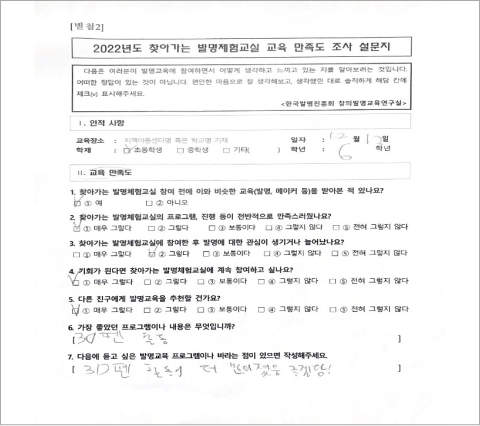 [별첨2]
2022년도 찾아가는 발명체험교실 교육 만족도 조사 설문지
다음은 여러분이 발명교육에 참여하면서 어떻게 생각하고 느끼고 있는 지를 알아보려는 것입니다.
어떠한 정답이 있는 것이 아닙니다. 편안한 마음으로 잘 생각해보고, 생각했던 대로 솔직하게 해당 칸에
체크(v) 표시해주세요.
<한국발명진흥회 창의발명교육연구실>
Ⅰ. 인적 사항
교육장소 : 지역아동센터명 혹은 학교명 기재 일자 : 12 월 13 일
학제 : □ 초등학생 □ 중학생 □ 기타( ) 학년 : 6 학년
Ⅱ. 교육 만족도
1. 찾아가는 발명체험교실 참여 전에 이와 비슷한 교육(발명, 메이커 등)을 받아본 적 있나요?
□ ① 예 □ ② 아니오
2. 찾아가는 발명체험교실의 프로그램, 진행 등이 전반적으로 만족스러웠나요?
□ ① 매우 그렇다 □ ② 그렇다 □ ③ 보통이다 □ ④ 그렇지 않다 □ ⑤ 전혀 그렇지 않다
3. 찾아가는 발명체험교실에 참여한 후 발명에 대한 관심이 생기거나 늘어났나요?
□ ① 매우 그렇다 □ ② 그렇다 □ ③ 보통이다 □ ④ 그렇지 않다 □ ⑤ 전혀 그렇지 않다
4. 기회가 된다면 찾아가는 발명체험교실에 계속 참여하고 싶나요?
□ ① 매우 그렇다 □ ② 그렇다 □ ③ 보통이다 □ ④ 그렇지 않다 □ ⑤ 전혀 그렇지 않다
5. 다른 친구에게 발명교육을 추천할 건가요?
□ ① 매우 그렇다 □ ② 그렇다 □ ③ 보통이다 □ ④ 그렇지 않다 □ ⑤ 전혀 그렇지 않다
6. 가장 좋았던 프로그램이나 내용은 무엇입니까?
[ 3D펜 활동 ]
7. 다음에 듣고 싶은 발명교육 프로그램이나 바라는 점이 있으면 작성해주세요.
[ 3D펜 활동이 더 ]